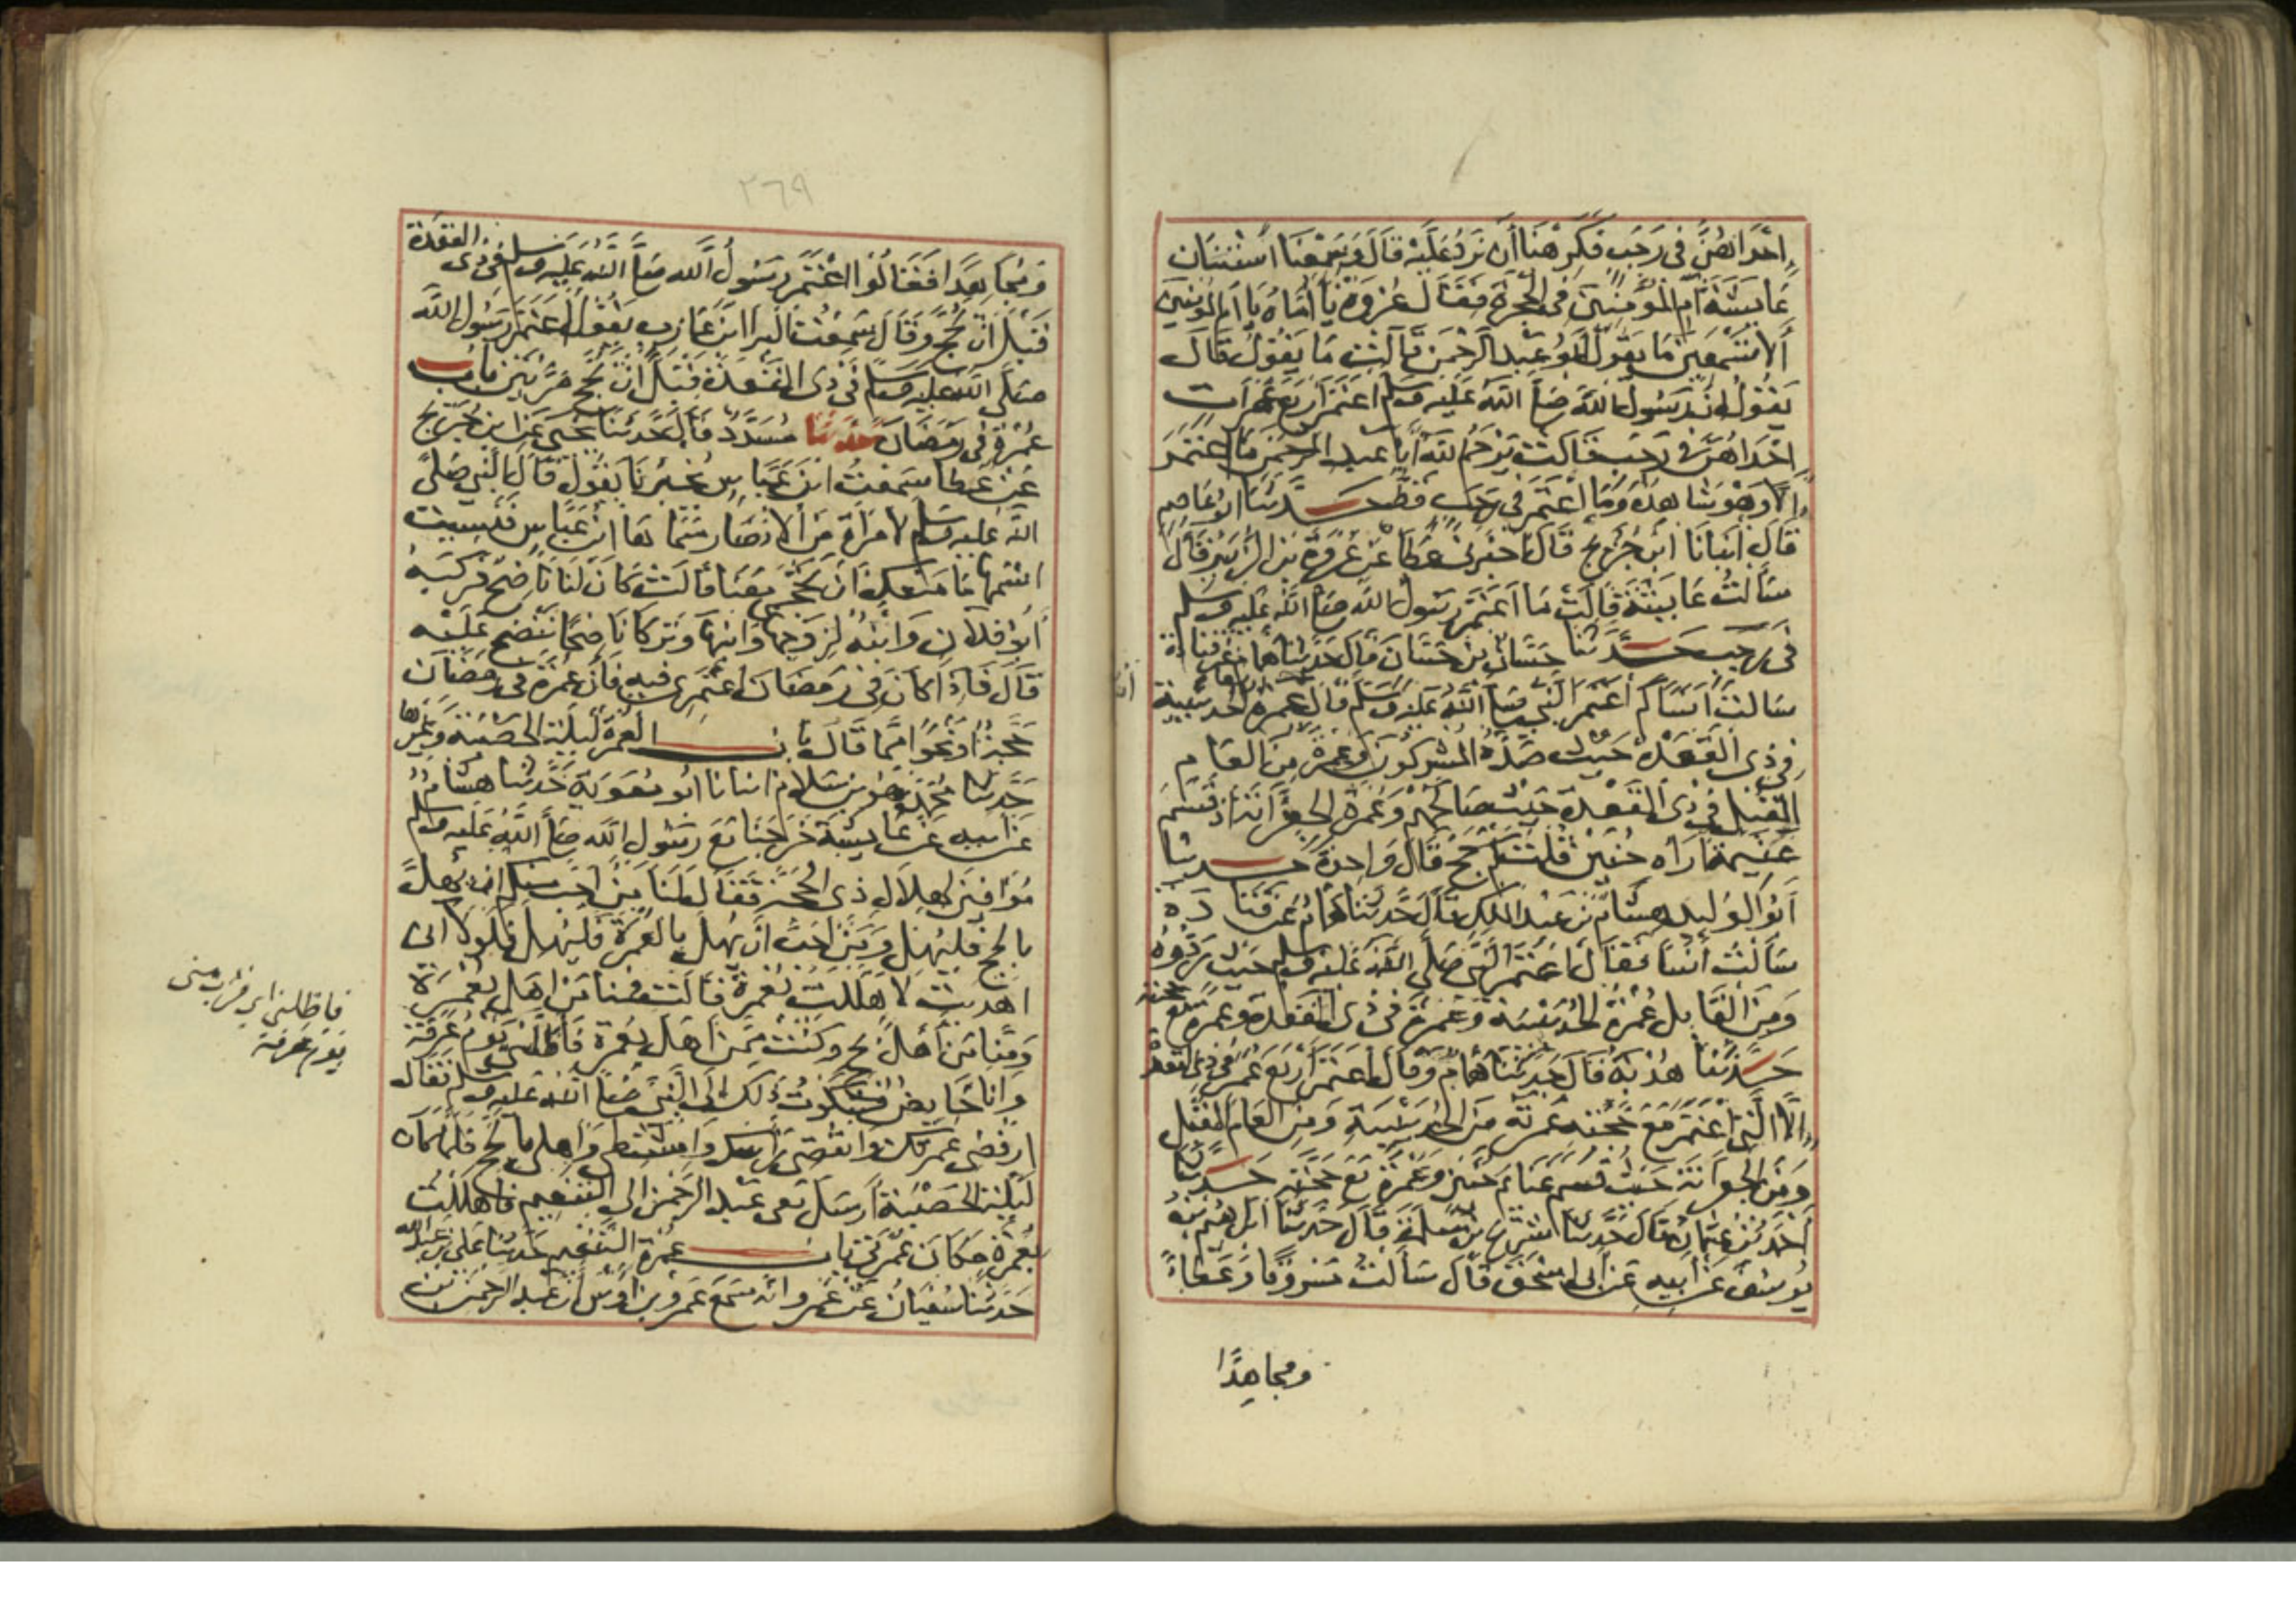 إحداهن في رجب فكرهنا أن نرد عليه قال وسمعنا استنان
عايشة أم المؤمنين في الحجرة فقال عروة يا أماه يا أم المؤمنين
ألا تسمعين ما يقول أبو عبد الرحمن قالت ما يقول قال
يقول إن رسول الله صلى الله عليه وسلم اعتمر أربع عمرات
إحداهن في رجب قالت يرحم الله أبا عبد الرحمن ما اعتمر
إلا وهو شاهده وما اعتمر في رجب قط حدثنا أبو عاصم
قال أنبانا ابن جريج قال أخبرني عطا عن عروة بن الزبير قال
سألت عايشة قالت ما اعتمر رسول الله صلى الله عليه وسلم
في رجب حدثنا حسان بن حسان قال حدثنا همام عن قتادة
سالت أنسا كم اعتمر النبي صلى الله عليه وسلم قال عمرة الحديبية
في ذي القعدة حيث صده المشركون وعمرة من العام
المقبل في ذي القعدة حيث صالحهم وعمرة الجعرانة إذ قسم
غنيمة أراه حنين قلت كم حج قال واحدة حدثنا
أبو الوليد هشام بن عبد الملك قال حدثنا همام عن قتادة
سألت أنسا فقال اعتمر النبي صلى الله عليه وسلم حيث ردوه
ومن القابل عمرة الحديبية وعمرة في ذي القعدة وعمرة مع حجته
حدثنا هدبة قال حدثنا همام وقال اعتمر أربع عمر في ذي القعدة
إلا التي اعتمر مع حجته عمرته من الحديبية ومن العام المقبل
ومن الجعرانة حيث قسم غنايم حنين وعمرة مع حجته حدثنا
أحمد بن عثمان قال حدثنا شريح بن مسلمة قال حدثنا إبراهيم بن
يوسف عن أبيه عن أبي إسحق قال سألت مسروقا وعطاء
ومجاهدا
٢٦٩
ومجاهدا فقالوا اعتمر رسول الله صلى الله عليه وسلم في ذي القعدة
قبل أن يحج وقال سمعت البرا ابن عازب يقول اعتمر رسول الله
صلى الله عليه وسلم في ذي القعدة قبل أن يحج مرتين باب
عمرة في رمضان حدثنا مسدد قال حدثنا يحيى عن ابن جريج
عن عطا سمعت ابن عباس يخبرنا يقول قال النبي صلى
الله عليه وسلم لامرأة من الأنصار سماها ابن عباس فنسيت
اسمها ما منعك أن تحجي معنا قالت كان لنا ناضح فركبه
أبو فلان وابنه لزوجها وابنها وترك ناضحا ننضح عليه
قال فإذا كان في رمضان اعتمري فيه فإن عمرة في رمضان
حجة أو نحوا مما قال باب العمرة ليلة الحصبة وغيرها
حدثنا محمد هو بن سلام انبانا أبو معوية حدثنا هشام
عن أبيه عن عايشة خرجنا مع رسول الله صلى الله عليه وسلم
موافين لهلال ذي الحجة فقال لنا من أحب منكم أن يهل
بالحج فليهل ومن أحب أن يهل بالعمرة فليهل فلولا أني
اهديت لاهللت بعمرة قالت فمنا من اهل بعمرة
ومنا من أهل بحج وكنت ممن اهل بعمرة فأظلني يوم عرفة
وأنا حايض فشكوت ذلك إلى النبي صلى الله عليه وسلم فقال
ارفضي عمرتك وانقضي رأسك وامتشطي وأهلي بالحج فلما كان
ليلة الحصبة أرسل معي عبد الرحمن إلى التنعيم فأهللت
بعمرة مكان عمرتي باب عمرة التنعيم حدثنا علي بن عبد الله
حدثنا سفيان عن عمرو انه سمع عمرو بن أوس أن عبد الرحمن بن
فاظلني اي قرب مني
يوم عرفة